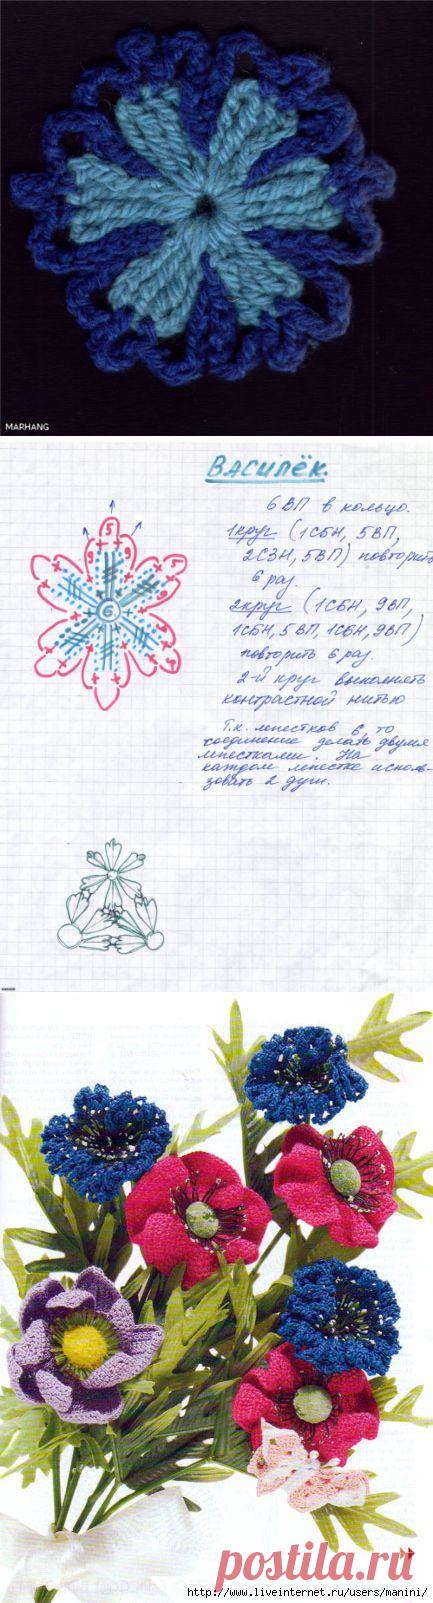 MARHANG
ВАСИЛЁК.
6 ВП в кольцо.
1 круг (1СБН, 5ВП,
2СЗН, 5ВП) повторить
6 раз.
2 круг (1СБН, 9ВП,
1СБН, 5ВП, 1СБН, 9ВП)
повторить 6 раз.
2-й круг выполнять
контрастной нитью
Т.к. лепестков 6, то
соединение делать двумя
лепестками. На
каждом лепестке исполь-
зовать 2 дуги.
5
6
postila.ru
http://www.liveinternet.ru/users/manini/